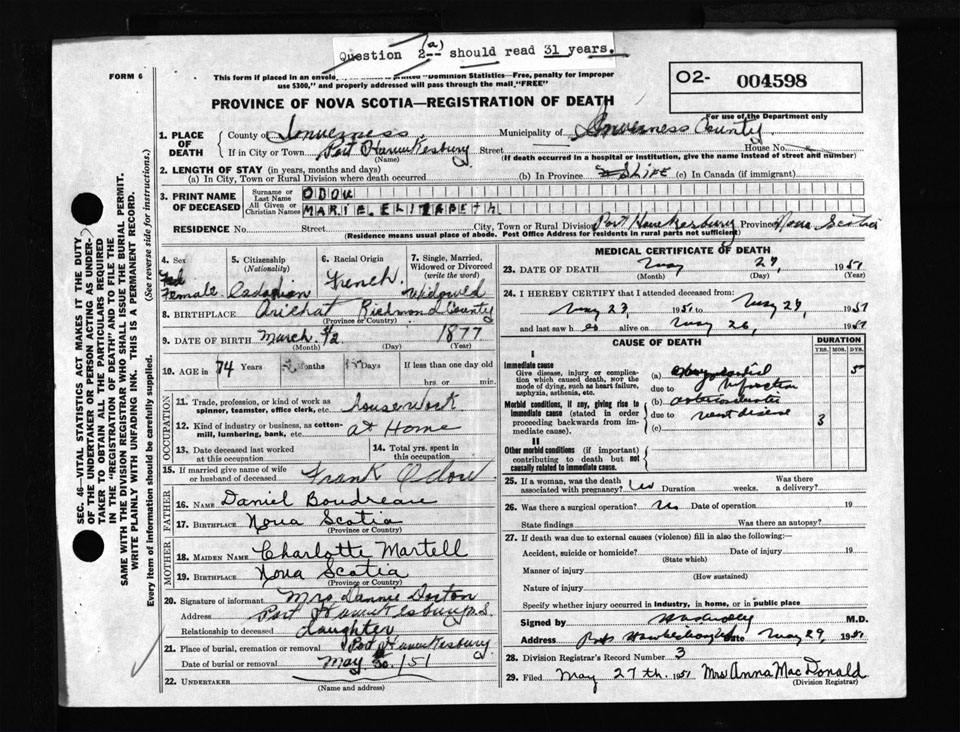 Question 2(a) should read 31 years.
FORM 6
This form if placed in an envelo
"Dominion Statistics—Free, penalty for improper
use $300," and properly addressed will pass through the mail "FREE"
O2- 004598
For use of the Department only
PROVINCE OF NOVA SCOTIA—REGISTRATION OF DEATH
1. PLACE OF DEATH
County of Inverness
Municipality of Inverness County
If in City or Town Port Hawkesbury Street House No.
(Name) (If death occurred in a hospital or institution, give the name instead of street and number)
2. LENGTH OF STAY (in years, months and days)
(a) In City, Town or Rural Division where death occurred (b) In Province Life (c) In Canada (if immigrant)
3. PRINT NAME OF DECEASED
Surname or Last Name ODOW
All Given or Christian Names MARIE ELIZABETH
RESIDENCE No. Street City, Town or Rural Division Port Hawkesbury Province Nova Scotia
(Residence means usual place of abode. Post Office Address for residents in rural parts not sufficient)
4. Sex Female
5. Citizenship (Nationality) Canadian
6. Racial Origin French
7. Single, Married, Widowed or Divorced (write the word) Widowed
8. BIRTHPLACE Arichat Richmond County
(Province or Country)
9. DATE OF BIRTH March 12 1877
(Month) (Day) (Year)
10. AGE in 74 Years 2 Months 15 Days If less than one day old
hrs. or min.
OCCUPATION
11. Trade, profession, or kind of work as spinner, teamster, office clerk, etc. Housework
12. Kind of industry or business, as cotton-mill, lumbering, bank, etc. At Home
13. Date deceased last worked at this occupation
14. Total yrs. spent in this occupation
15. If married give name of wife or husband of deceased Frank Odow
FATHER
16. NAME Daniel Boudreau
17. BIRTHPLACE Nova Scotia
(Province or Country)
MOTHER
18. MAIDEN NAME Charlotte Martell
19. BIRTHPLACE Nova Scotia
(Province or Country)
20. Signature of informant Mrs Dannie Dorton
Address Port Hawkesbury N.S.
Relationship to deceased daughter
21. Place of burial, cremation or removal Port Hawkesbury
Date of burial or removal May 30/51
22. UNDERTAKER
(Name and address)
MEDICAL CERTIFICATE OF DEATH
23. DATE OF DEATH May 27, 1951
(Month) (Day) (Year)
24. I HEREBY CERTIFY that I attended deceased from:
May 23 1951 to May 27, 1951
and last saw her alive on May 26, 1951
CAUSE OF DEATH DURATION
YRS. MOS. DYS.
I
Immediate cause
Give disease, injury or complication which caused death, NOT the mode of dying, such as heart failure, asphyxia, asthenia, etc.
(a) myocardial 5
due to infarction
Morbid conditions, if any, giving rise to immediate cause (stated in order proceeding backwards from immediate cause).
(b)
due to heart disease 3
(c)
II
Other morbid conditions (if important) contributing to death but not causally related to immediate cause.
25. If a woman, was the death associated with pregnancy? No Duration weeks. Was there a delivery?
26. Was there a surgical operation? No Date of operation 19
State findings Was there an autopsy?
27. If death was due to external causes (violence) fill in also the following:
Accident, suicide or homicide? Date of injury 19
(State which)
Manner of injury
(How sustained)
Nature of injury
Specify whether injury occurred in industry, in home, or in public place
Signed by M.D.
Address Port Hawkesbury Date May 29, 1951
28. Division Registrar's Record Number 3
29. Filed May 27th. 1951 Mrs Anna MacDonald
(Division Registrar)
SEC. 46—VITAL STATISTICS ACT MAKES IT THE DUTY
OF THE UNDERTAKER OR PERSON ACTING AS UNDERTAKER TO OBTAIN ALL THE PARTICULARS REQUIRED
IN THE "REGISTRATION OF DEATH" AND TO FILE THE
SAME WITH THE DIVISION REGISTRAR WHO SHALL ISSUE THE BURIAL PERMIT.
WRITE PLAINLY WITH UNFADING INK. THIS IS A PERMANENT RECORD.
Every item of information should be carefully supplied. (See reverse side for instructions.)